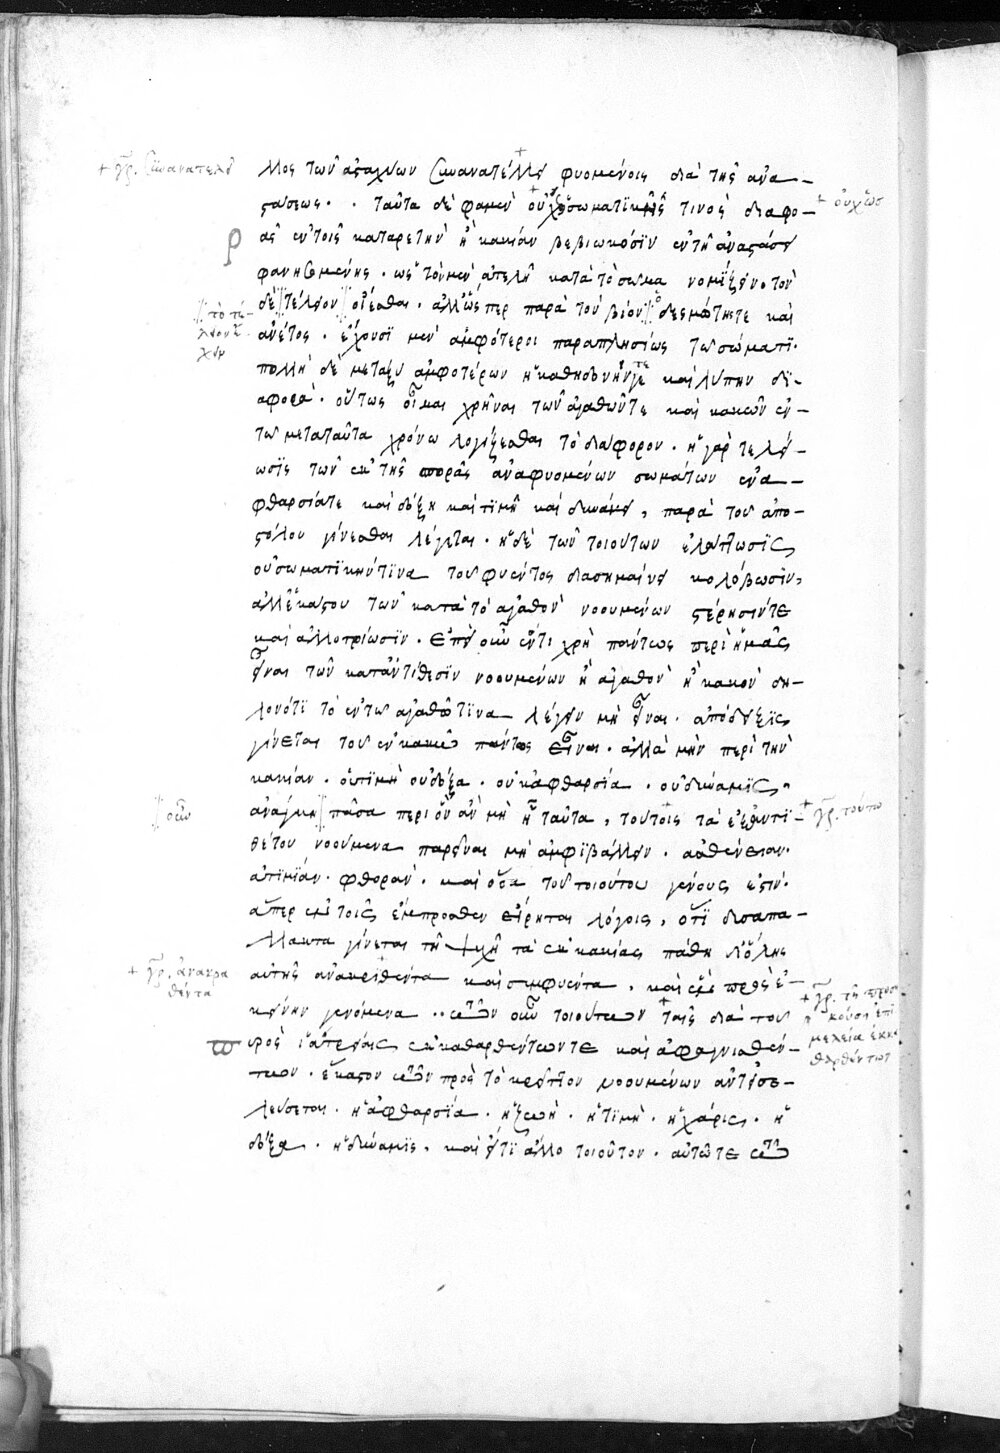 + γρ. συνανατελεῖ
λος τῶν ἀσταχύων συνανατέλλει φυομένοις διὰ τῆς ἀνα-
στάσεως · ταῦτα δὲ φαμὲν οὐχ σωματικῆς τινὸς διαφο-
+ οὐχ ὡς
ρ
ᾶς ἐν τοῖς κατ ἀρετὴν ἢ κακίαν βεβιωκόσιν ἐν τῇ ἀναστάσει
φανησομένης · ὡς τὸν μὲν ἀτελῆ κατὰ τὸ σῶμα νομίζειν · τὸν
δὲ τέλειον οἴεσθαι · ἀλλ ὥσπερ παρὰ τὸν βίον ὁ δεσμώτης τε καὶ
τὸ τέ-
λειον ἔ-
χειν
ἄνετος · ἔχουσι μὲν ἀμφότεροι παραπλησίως τῷ σώματι ·
πολλὴ δὲ μεταξὺ ἀμφοτέρων ἡ καθ ἡδονήν τε καὶ λύπην δι-
αφορά · οὕτως οἶμαι χρῆναι τῶν ἀγαθῶν τε καὶ κακῶν ἐν
τῷ μετὰ ταῦτα χρόνῳ λογίζεσθαι τὸ διάφορον · ἡ γὰρ τελεί-
ωσις τῶν ἐκ τῆς σπορᾶς ἀναφυομένων σωμάτων ἐν ἀ-
φθαρσίᾳ τε καὶ δόξῃ καὶ τιμῇ καὶ δυνάμει, παρὰ τοῦ ἀπο-
στόλου γίνεσθαι λέγεται · ἡ δὲ τῶν τοιούτων ἐλάττωσις
οὐ σωματικήν τινα τοῦ φυέντος διασημαίνει κολόβωσιν,
ἀλλ ἑκάστου τῶν κατὰ τὸ ἀγαθὸν νοουμένων στέρησίν τε
καὶ ἀλλοτρίωσιν · ἐπεὶ οὖν ἕν τι χρὴ πάντως περὶ ἡμᾶς
εἶναι τῶν κατ ἀντίθεσιν νοουμένων ἢ ἀγαθὸν ἢ κακὸν δη-
λονότι τὸ ἐν τῷ ἀγαθῷ τινα λέγειν μὴ εἶναι · ἀπόδειξις
γίνεται τοῦ ἐν κακῷ πάντως εἶναι · ἀλλὰ μὴν περὶ τὴν
κακίαν · οὐ τιμὴ οὐ δόξα · οὐκ ἀφθαρσία · οὐ δύναμις ·
ἀνάγκη πᾶσα περὶ ὃν ἂν μὴ ᾖ ταῦτα, τούτοις τὰ ἐξ ἀντι-
οὖν
+ γρ. τούτῳ
θέτου νοούμενα παρεῖναι μὴ ἀμφιβάλλειν · ἀσθένειαν ·
ἀτιμίαν · φθοράν · καὶ ὅσα τοῦ τοιούτου γένους ἐστίν ·
ἅπερ ἐν τοῖς ἔμπροσθεν εἴρηται λόγοις, ὅτι δυσαπα-
λλακτα γίνεται τῇ ψυχῇ τὰ ἐκ κακίας πάθη δι ὅλης
αὐτῆς ἀνακριθέντα καὶ συμφυέντα, καὶ ἓν πρὸς ἐ-
+ γρ. ἀνακρα
θέντα
κείνην γενόμενα ·· τῶν οὖν τοιούτων ταῖς διὰ τοῦ
π
υρὸς ἰατρείαις ἐκκαθαρθέντων τε καὶ ἀφαγνισθέν-
+ γρ. τῇ προση-
κούσῃ ἐπι
μελείᾳ ἐκκα
θαρθέντων
των · ἕκαστον τῶν πρὸς τὸ κρεῖττον νοουμένων ἀντεισε-
λεύσεται · ἡ ἀφθαρσία · ἡ ζωή · ἡ τιμή · ἡ χάρις · ἡ
δόξα · ἡ δύναμις, καὶ εἴ τι ἄλλο τοιοῦτον · αὐτῷ τε